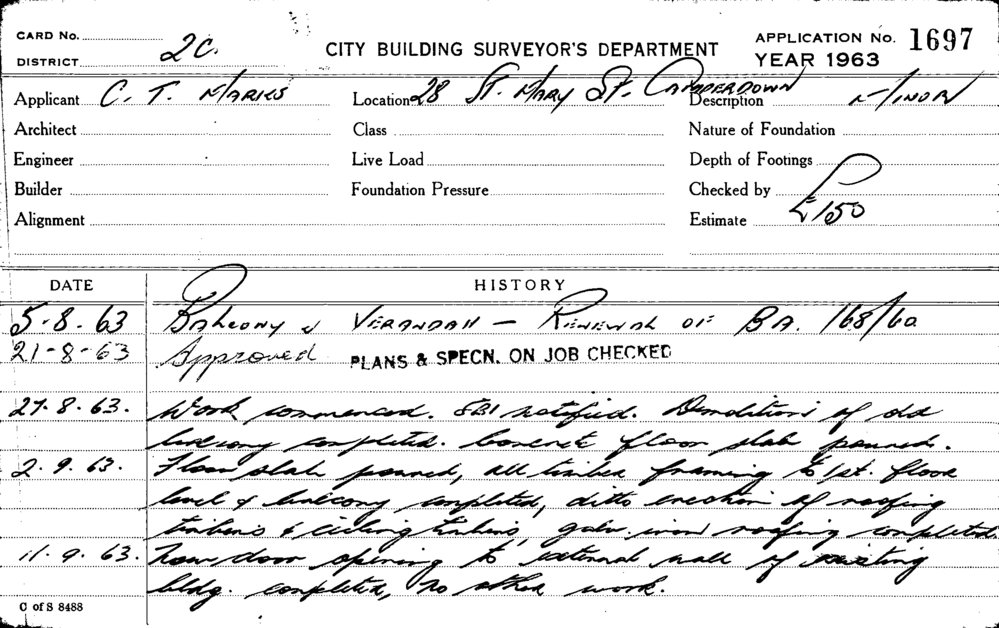 CARD No.
DISTRICT 2C.
CITY BUILDING SURVEYOR'S DEPARTMENT
APPLICATION No. 1697
YEAR 1963
Applicant C. T. MARKS
Location 28 ST. MARY ST. CAMPERDOWN
Description MINOR
Architect
Class
Nature of Foundation
Engineer
Live Load
Depth of Footings
Builder
Foundation Pressure
Checked by
Alignment
Estimate £150
DATE HISTORY
5-8-63 BALCONY & VERANDAH — RENEWAL OF BA. 168/60
21-8-63 Approved PLANS & SPECN. ON JOB CHECKED
27.8.63. Work commenced. SBI notified. Demolition of old
balcony completed. Concrete floor slab poured.
2.9.63. Floor slab poured, all timber framing to 1st. floor
level & balcony completed, ditto erection of roofing
timbers & ceiling timbers, galv. iron roofing completed.
11.9.63. New door opening to external wall of existing
bldg. completed, no other work.
C of S 8488